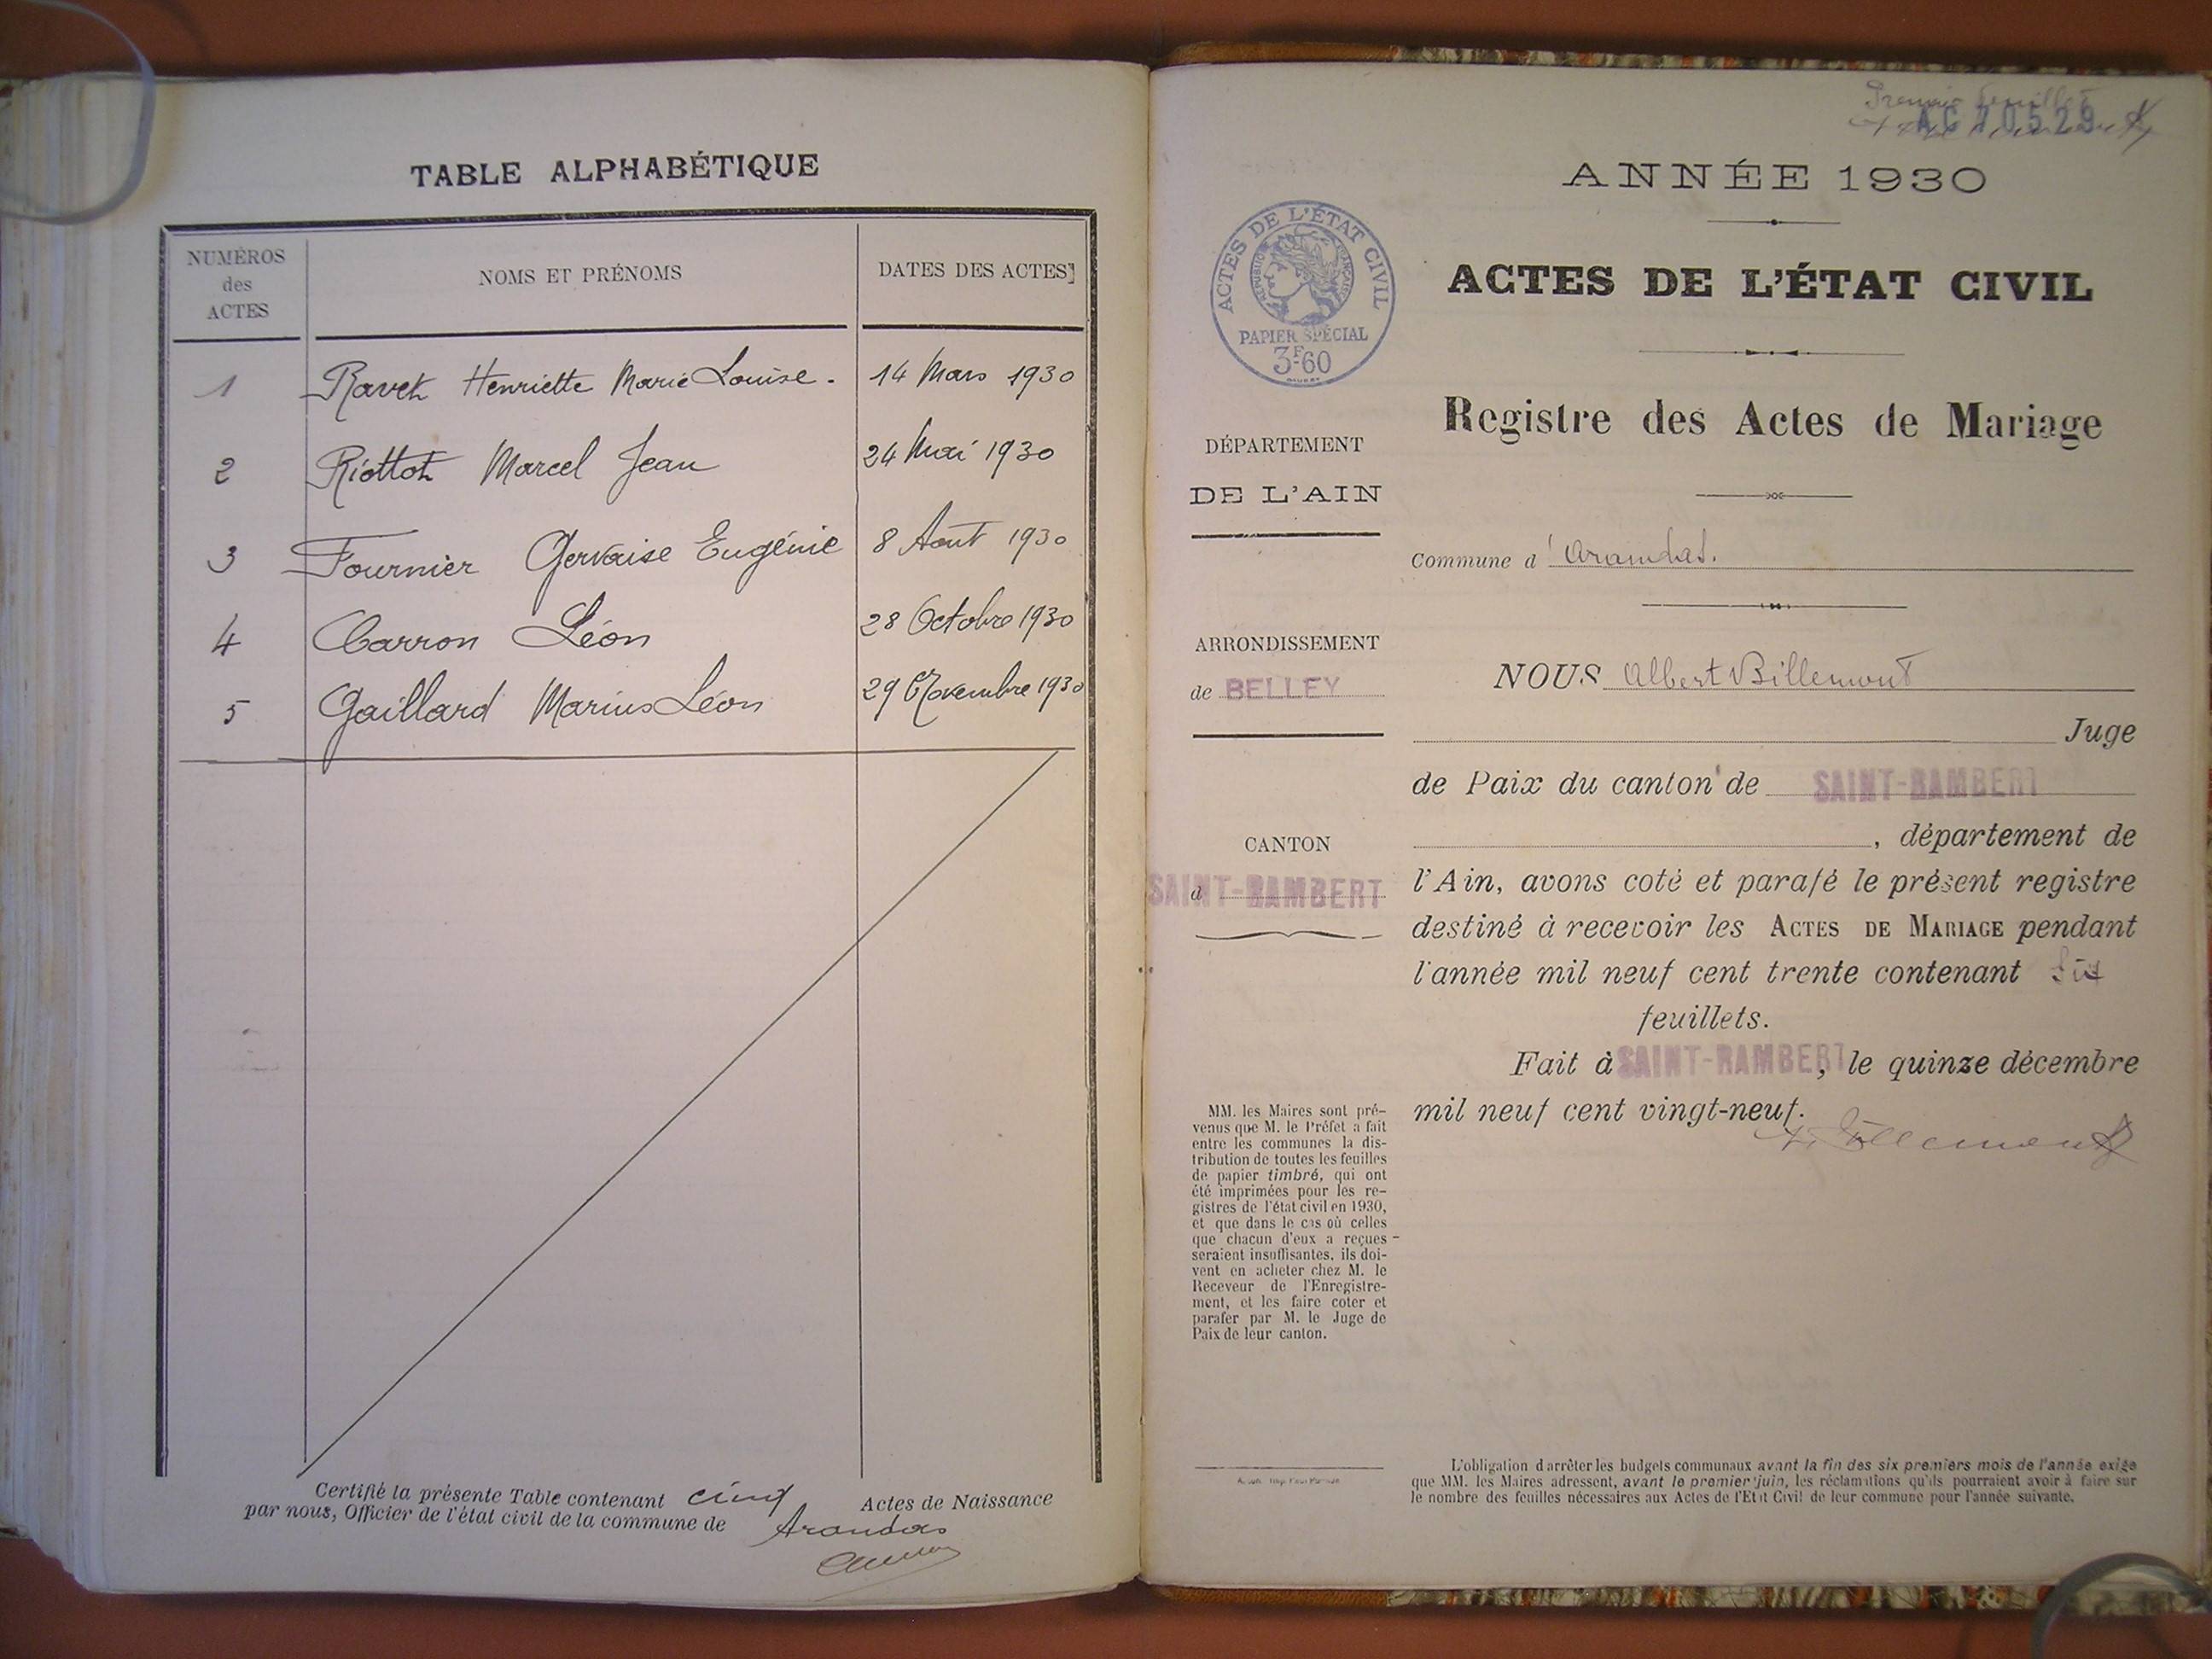 TABLE ALPHABÉTIQUE
NUMÉROS
des
ACTES
NOMS ET PRÉNOMS
DATES DES ACTES
1 Ravet Henriette Marie Louise. 14 Mars 1930
2 Riottot Marcel Jean 24 Mai 1930
3 Fournier Gervaise Eugénie 8 Août 1930
4 Carron Léon 28 Octobre 1930
5 Gaillard Marius Léon 29 Novembre 1930
Certifié la présente Table contenant cinq Actes de Naissance
par nous, Officier de l'état civil de la commune de Arandas
Premier feuillet
AC 70529
ANNÉE 1930
ACTES DE L'ÉTAT CIVIL
RÉPUBLIQUE FRANÇAISE
PAPIER SPÉCIAL
3F60
ACTES DE L'ÉTAT CIVIL
Registre des Actes de Mariage
DÉPARTEMENT
DE L'AIN
Commune d'Arandas.
ARRONDISSEMENT
de BELLEY
NOUS Albert Billemont
Juge
de Paix du canton de SAINT-RAMBERT
, département de
CANTON
d SAINT-RAMBERT
l'Ain, avons coté et parafé le présent registre
destiné à recevoir les ACTES DE MARIAGE pendant
l'année mil neuf cent trente contenant six
feuillets.
Fait à SAINT-RAMBERT, le quinze décembre
mil neuf cent vingt-neuf.
A. Billemont
MM. les Maires sont pré-
venus que M. le Préfet a fait
entre les communes la dis-
tribution de toutes les feuilles
de papier timbré, qui ont
été imprimées pour les re-
gistres de l'état civil en 1930,
et que dans le cas où celles
que chacun d'eux a reçues
seraient insuffisantes, ils doi-
vent en acheter chez M. le
Receveur de l'Enregistre-
ment, et les faire coter et
parafer par M. le Juge de
Paix de leur canton.
L'obligation d'arrêter les budgets communaux avant la fin des six premiers mois de l'année exige
que MM. les Maires adressent, avant le premier juin, les réclamations qu'ils pourraient avoir à faire sur
le nombre des feuilles nécessaires aux Actes de l'Etat Civil de leur commune pour l'année suivante.